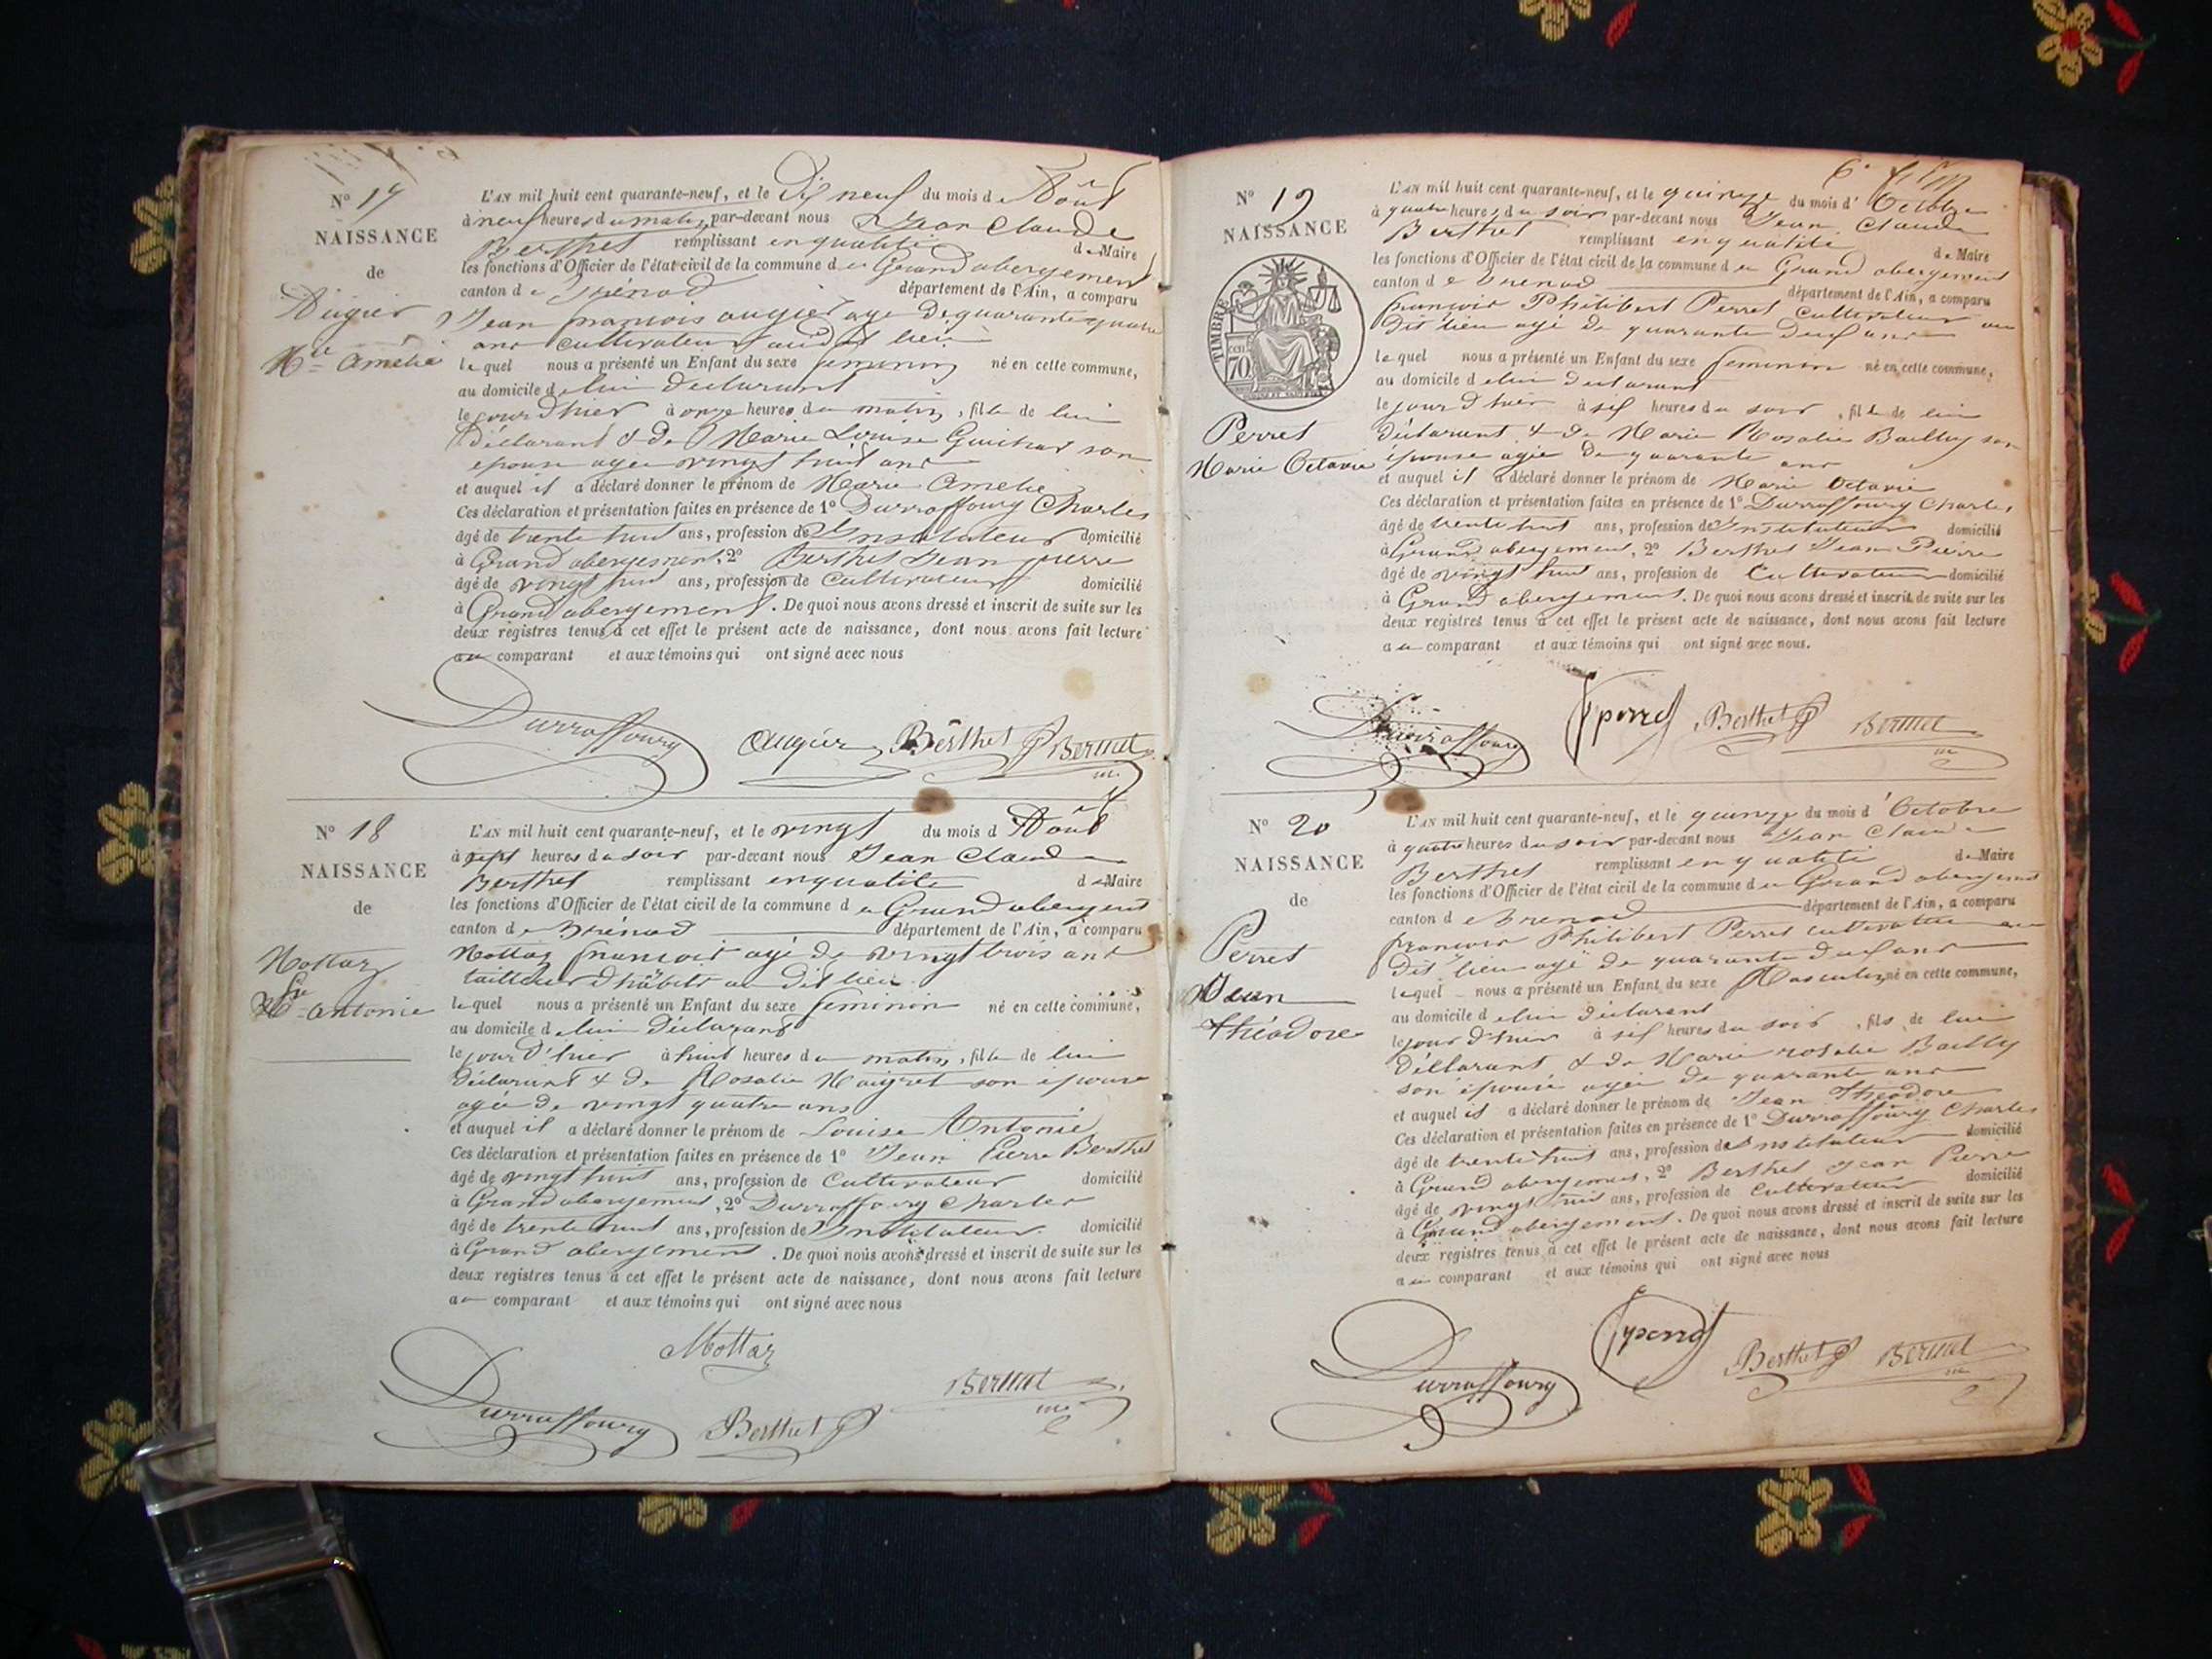 N° 17
NAISSANCE
de
Augier
Mie Amélie
L'AN mil huit cent quarante-neuf, et le Dix neuf du mois d Août
à neuf heures du matin par-devant nous Jean Claude
Berthet remplissant en qualité de Maire
les fonctions d'Officier de l'état civil de la commune d u Grand abergement
canton d e Brénod département de l'Ain, a comparu
Jean françois augier age de quarante quatre
ans cultivateur audit lieu
lequel nous a présenté un Enfant du sexe feminin né en cette commune,
au domicile de lui déclarant
le jour d'hier à onze heures du matin, fille de lui
déclarant & de Marie Louise Guichat son
épouse agée vingt huit ans
et auquel il a déclaré donner le prénom de Marie Amelie
Ces déclaration et présentation faites en présence de 1° Durraffourg Charles
âgé de trente huit ans, profession de Instituteur domicilié
à Grand abergement, 2° Berthet Jean pierre
âgé de vingt huit ans, profession de Cultivateur domicilié
à Grand abergement. De quoi nous avons dressé et inscrit de suite sur les
deux registres tenus à cet effet le présent acte de naissance, dont nous avons fait lecture
au comparant et aux témoins qui ont signé avec nous
Durraffourg Augier Berthet Berthet
m.
N° 18
NAISSANCE
de
Mottaz
Lse
Antonie
L'AN mil huit cent quarante-neuf, et le vingt du mois d Août
à sept heures du soir par-devant nous Jean Claude
Berthet remplissant en qualité de Maire
les fonctions d'Officier de l'état civil de la commune d u Grand abergement
canton de Brénod département de l'Ain, a comparu
Mottaz françois agé de vingt trois ans
tailleur d'habits au dit lieu
lequel nous a présenté un Enfant du sexe feminin né en cette commune,
au domicile de lui déclarant
le jour d'hier à huit heures du matin, fille de lui
déclarant & de Rosalie Maigret son épouse
agée de vingt quatre ans
et auquel il a déclaré donner le prénom de Louise Antonie
Ces déclaration et présentation faites en présence de 1° Jean Pierre Berthet
âgé de vingt huit ans, profession de Cultivateur domicilié
à Grand abergement, 2° Durraffourg Charles
âgé de trente huit ans, profession de Instituteur domicilié
à Grand abergement. De quoi nous avons dressé et inscrit de suite sur les
deux registres tenus à cet effet le présent acte de naissance, dont nous avons fait lecture
au comparant et aux témoins qui ont signé avec nous
Mottaz
Durraffourg Berthet Berthet
m
N° 19
NAISSANCE
TIMBRE
70
Perret
Marie Octavie
L'AN mil huit cent quarante-neuf, et le quinze du mois d' Octobre
à quatre heures du soir par-devant nous Jean Claude
Berthet remplissant en qualité de Maire
les fonctions d'Officier de l'état civil de la commune d u Grand abergement
canton d e Brenod département de l'Ain, a comparu
françois Philibert Perret Cultivateur au
dit lieu agé de quarante deux ans
lequel nous a présenté un Enfant du sexe feminin né en cette commune,
au domicile de lui déclarant
le jour d'hier à six heures du soir, fille de lui
déclarant & de Marie Rosalie Bailly son
épouse agée de quarante ans
et auquel il a déclaré donner le prénom de Marie Octavie
Ces déclaration et présentation faites en présence de 1° Durraffourg Charles,
âgé de trente huit ans, profession de Instituteur domicilié
à Grand abergement, 2° Berthet Jean Pierre
âgé de vingt huit ans, profession de Cultivateur domicilié
à Grand abergement. De quoi nous avons dressé et inscrit de suite sur les
deux registres tenus à cet effet le présent acte de naissance, dont nous avons fait lecture
au comparant et aux témoins qui ont signé avec nous.
Durraffourg perret Berthet Berthet
m
N° 20
NAISSANCE
de
Perret
Jean
théodore
L'AN mil huit cent quarante-neuf, et le quinze du mois d' Octobre
à quatre heures du soir par-devant nous Jean Claude
Berthet remplissant en qualité de Maire
les fonctions d'Officier de l'état civil de la commune d u Grand abergement
canton d e Brenod département de l'Ain, a comparu
françois Philibert Perret cultivateur au
dit lieu agé de quarante deux ans
lequel nous a présenté un Enfant du sexe Masculin né en cette commune,
au domicile de lui déclarant
le jour d'hier à six heures du soir, fils de lui
déclarant & de Marie rosalie Bailly
son épouse agée de quarante ans
et auquel il a déclaré donner le prénom de Jean théodore
Ces déclaration et présentation faites en présence de 1° Durraffourg Charles
âgé de trente huit ans, profession de Instituteur domicilié
à Grand abergement, 2° Berthet Jean Pierre
âgé de vingt huit ans, profession de Cultivateur domicilié
à Grand abergement. De quoi nous avons dressé et inscrit de suite sur les
deux registres tenus à cet effet le présent acte de naissance, dont nous avons fait lecture
au comparant et aux témoins qui ont signé avec nous
Durraffourg perret Berthet Berthet
m